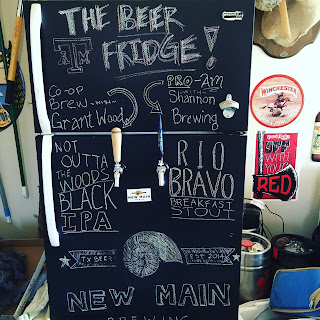 THE BEER
FRIDGE!
ATM
CO-OP
BREW -WITH-
GRANT WOOD
PRO-AM
-WITH-
SHANNON
BREWING
WINCHESTER
NOT
OUTTA
THE
WOODS
BLACK
IPA
NEW MAIN
RIO
BRAVO
BREAKFAST
STOUT
WITH
YOUR
RED
TX BEER
EST 2014
NEW MAIN
BREWING